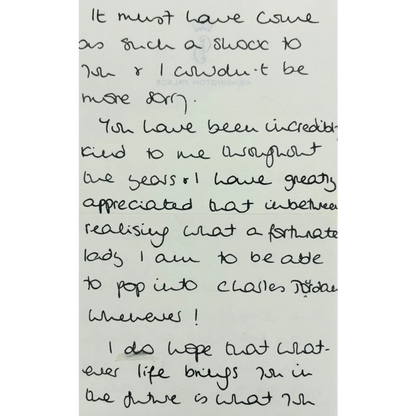 It must have come
as such a shock to
you & I couldn't be
more sorry.
You have been incredibly
kind to me throughout
the years & I have greatly
appreciated that inbetween
realising what a fortunate
lady I am to be able
to pop into Charles
whenever!
I do hope that what-
ever life brings you in
the future is what you